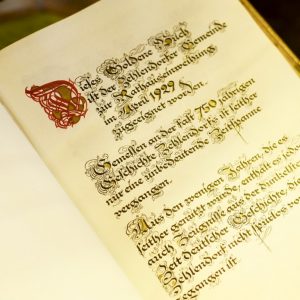 Dieses Goldene Buch
ist der Zehlendorfer Gemeinde
zur Rathauseinweihung
im April 1929
zugeeignet worden.
Gemessen an der fast 750 jährigen
Geschichte Zehlendorfs ist seither
nur eine unbedeutende Zeitspanne
vergangen.
Aus den wenigen Zeilen, die es
seither genutzt wurde, enthält es jedoch
auch Zeugnisse aus der dunkelsten
Zeit deutscher Geschichte, die
Zehlendorf nicht spurlos
gegangen ist.